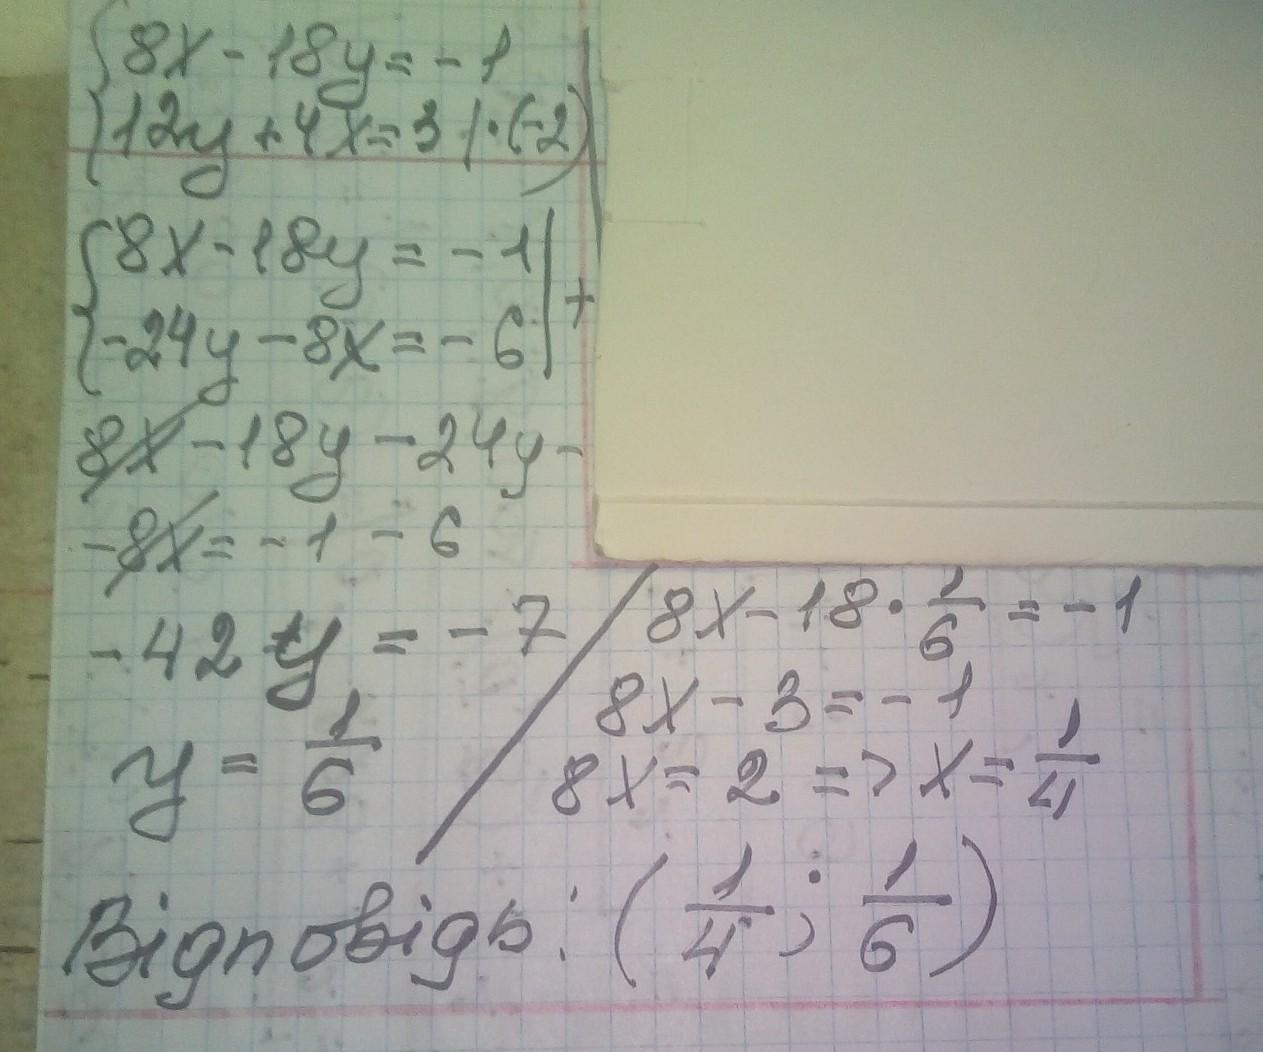 {8x - 18y = - 1
{12y + 4x = 3 | · (-2)
{8x - 18y = - 1 | +
{-24y - 8x = - 6
8x - 18y - 24y -
- 8x = - 1 - 6
- 42y = - 7
y = 1/6
8x - 18 · 1/6 = - 1
8x - 3 = - 1
8x = 2 => x = 1/4
Відповідь: (1/4; 1/6)